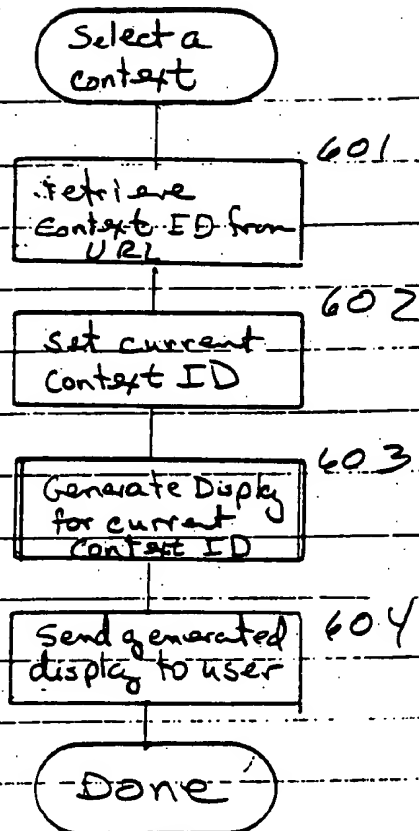 Select a
context
601
retrieve
context ID from
URL
602
Set current
Context ID
603
Generate Display
for current
Context ID
604
Send generated
display to user
Done